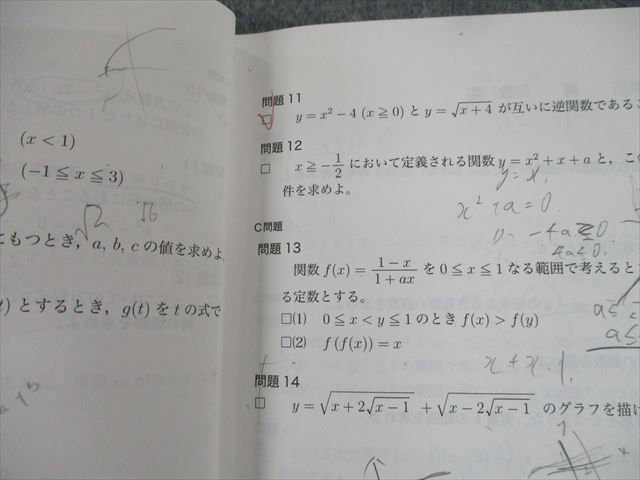 (x < 1)
(−1 ≦ x ≦ 3)
√2 √6
もつとき, a, b, c の値を求めよ
t) とするとき, g(t) を t の式で
問題 11
□ y = x² − 4 (x ≧ 0) と y = √(x + 4) が互いに逆関数であるこ
問題 12
□ x ≧ −1/2 において定義される関数 y = x² + x + a と, こ
y = x,
件を求めよ。
x² + a = 0.
D = −4a ≧ 0
4a ≦ 0.
C問題
問題 13
関数 f(x) = (1 − x)/(1 + ax) を 0 ≦ x ≦ 1 なる範囲で考えると
る定数とする。
□(1) 0 ≦ x < y ≦ 1 のとき f(x) > f(y)
□(2) f(f(x)) = x
x + x − 1,
問題 14
□ y = √(x + 2√(x − 1)) + √(x − 2√(x − 1)) のグラフを描け